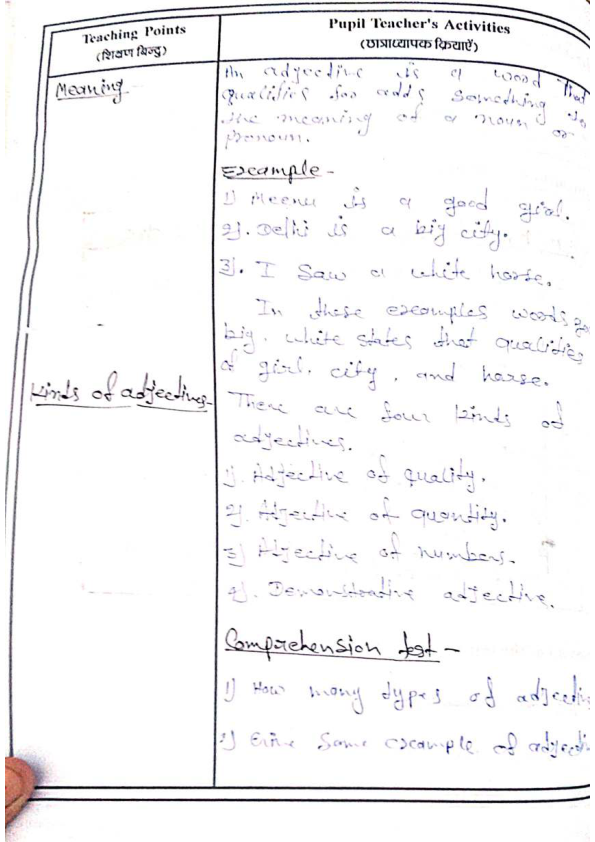 Teaching Points
(शिक्षण बिन्दु)
Pupil Teacher's Activities
(छात्राध्यापक क्रियाएँ)
Meaning
An adjective is a word that
qualifies for adds something to
the meaning of a noun or
pronoun.
Example -
1) Meenu is a good girl.
2). Delhi is a big city.
3). I saw a white horse.
In these examples words
big, white states that qualities
of girl, city, and horse.
Kinds of adjectives-
There are four kinds of
adjectives.
1). Adjective of quality.
2). Adjective of quantity.
3) Adjective of numbers.
4). Demonstrative adjective.
Comprehension test -
1) How many types of
2) Give some example of